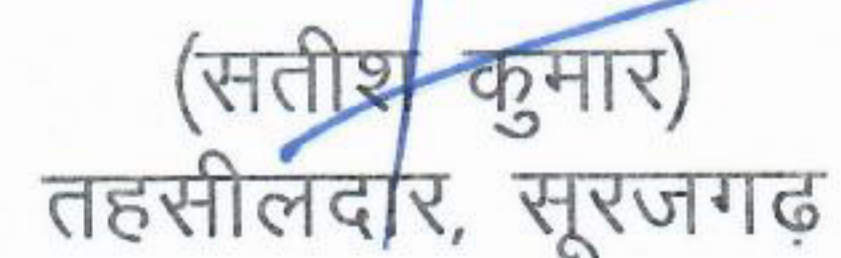 (सतीश कुमार)
तहसीलदार, सूरजगढ़